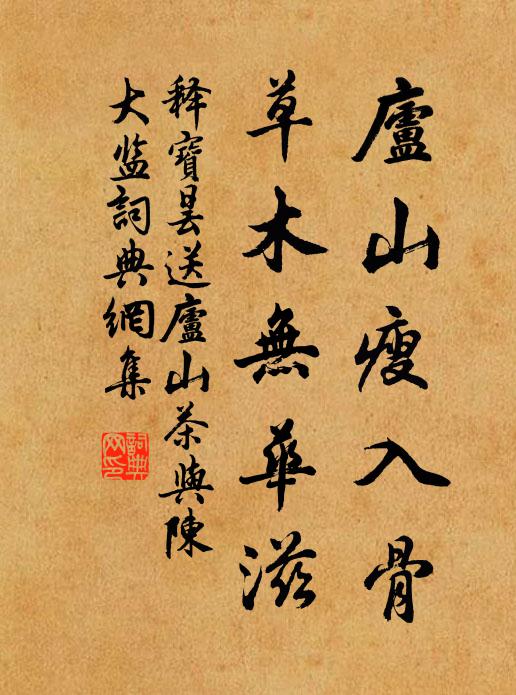 廬山瘦入骨
草木無華滋
释寶曇送廬山茶與陳
大监詞典網集
詞典
网印